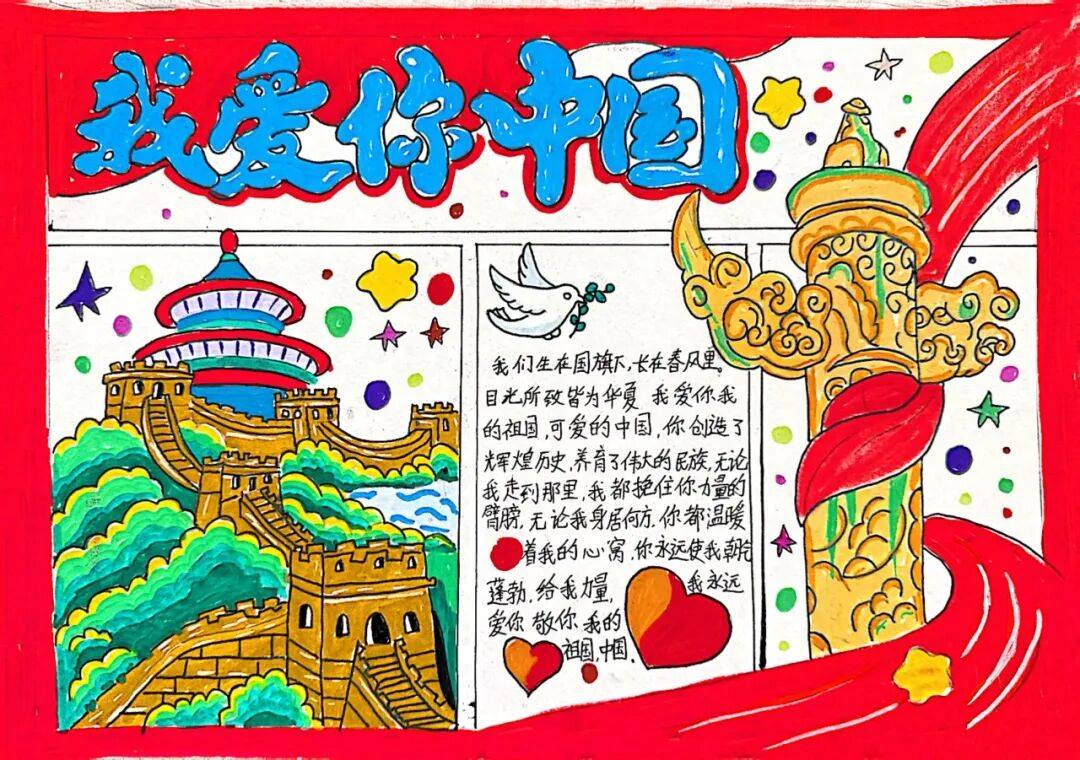 我爱你中国
我们生在国旗下,长在春风里。
目光所致皆为华夏 我爱你我
的祖国,可爱的中国,你创造了
辉煌历史,养育了伟大的民族,无论
我走到那里,我都挽住你力量的
臂膀,无论我身居何方,你都温暖
着我的心窝,你永远使我朝气
蓬勃,给我力量, 我永远
爱你 敬你 我的
祖国,中国.